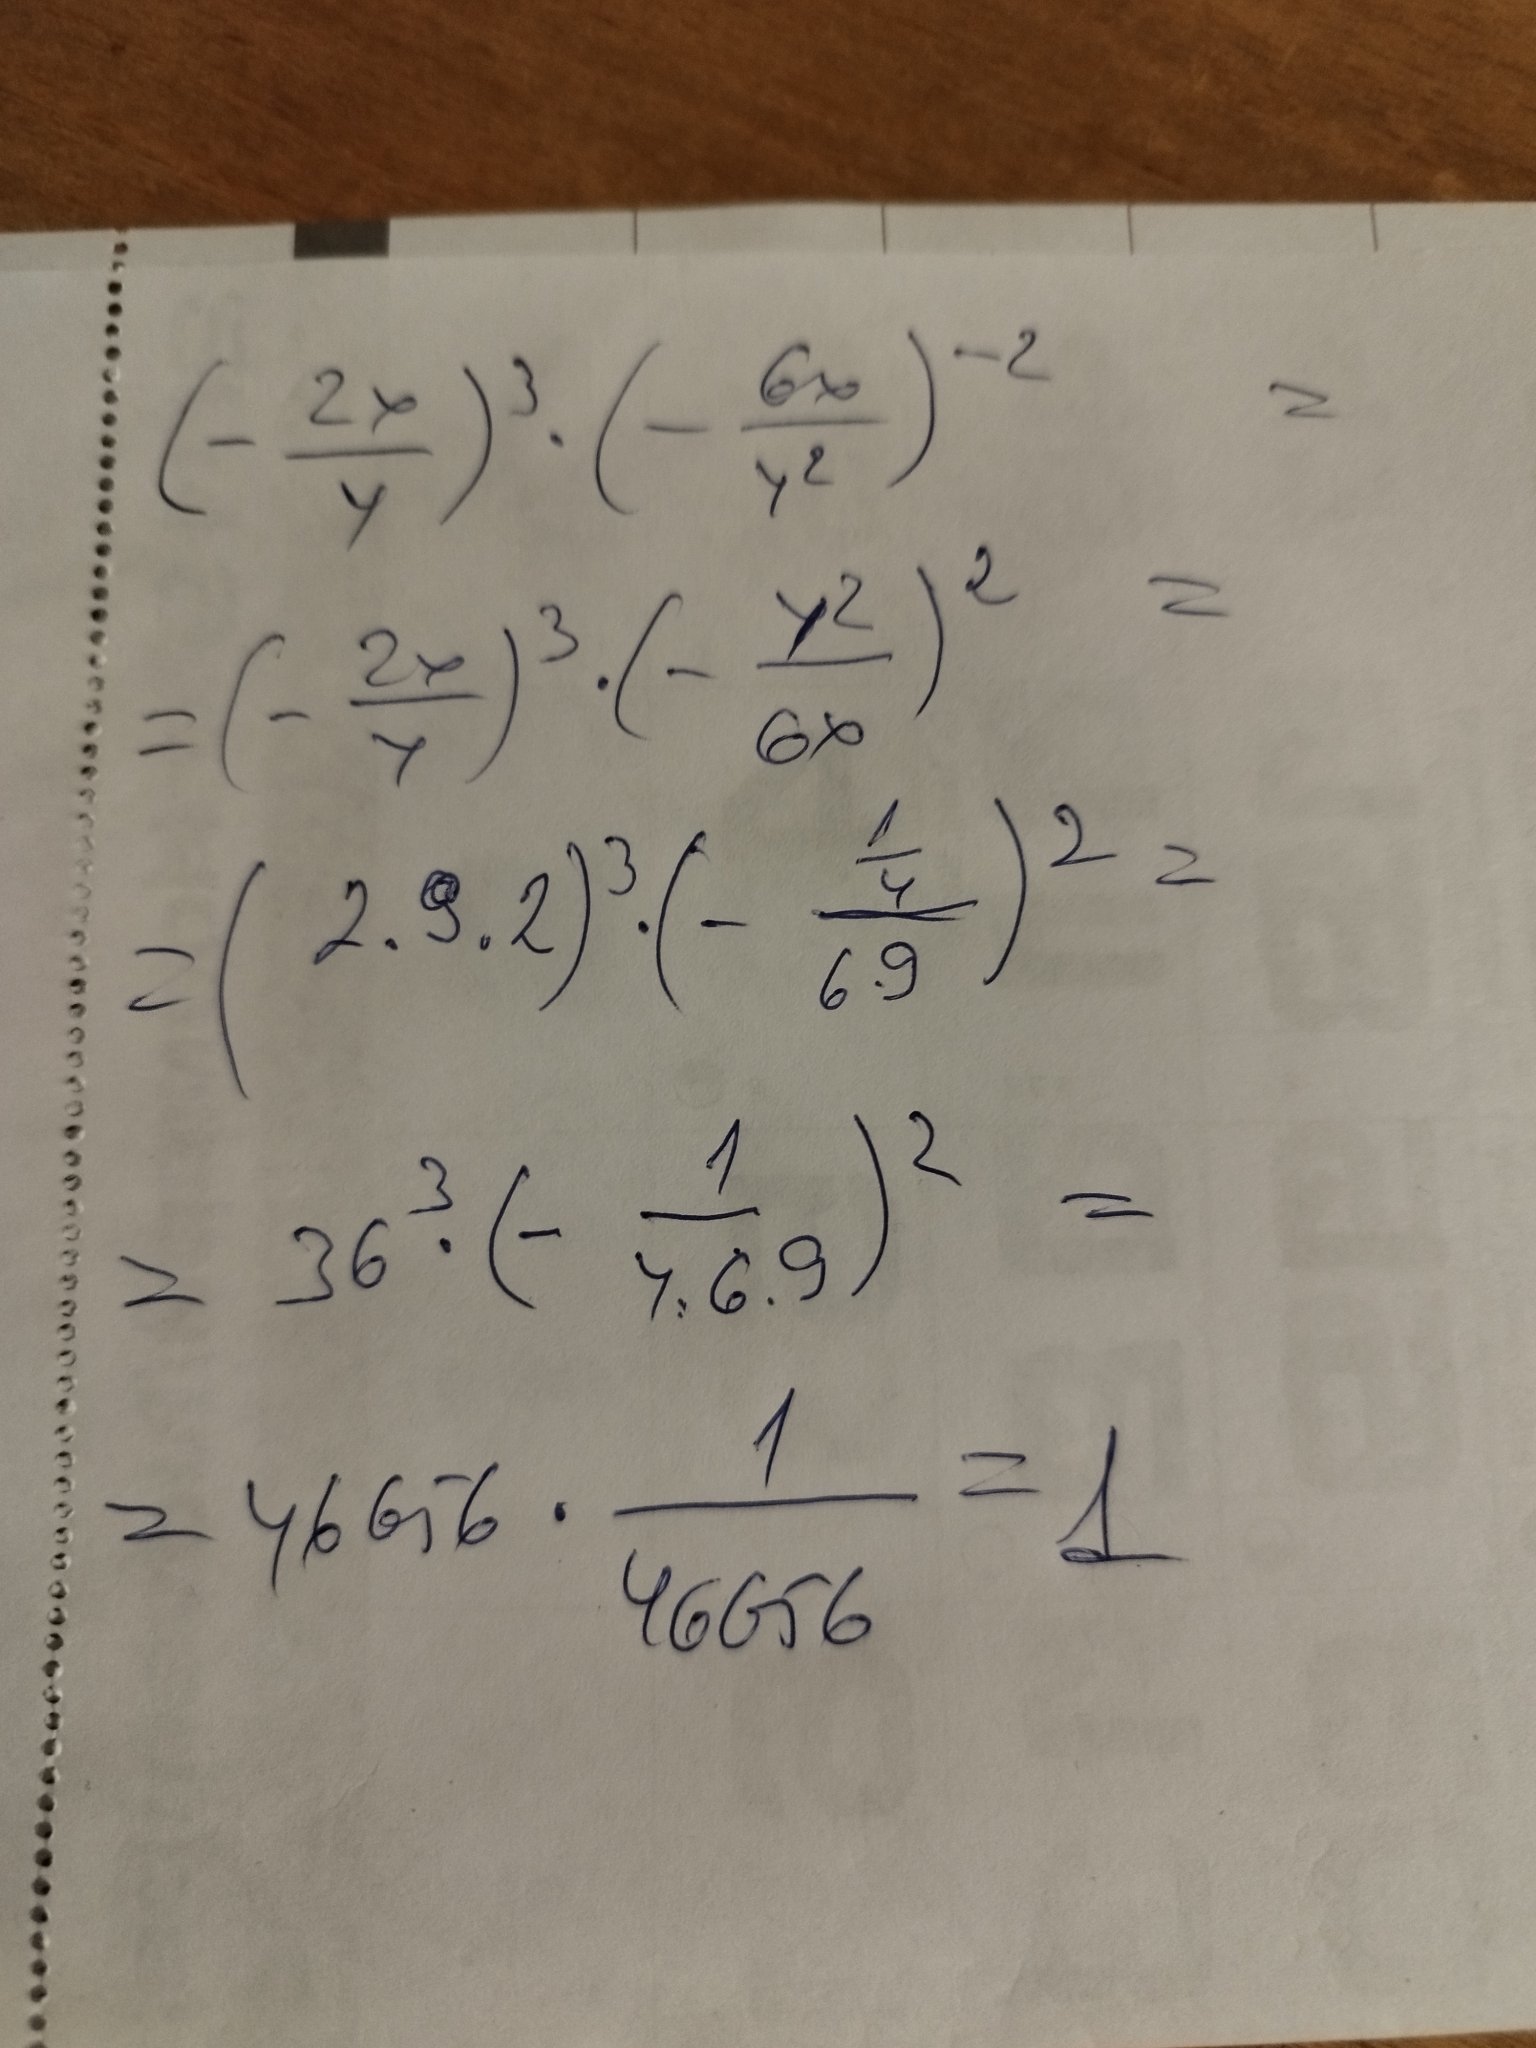 (- 2x/y)³ · (- 6x/y²)⁻² =
= (- 2x/y)³ · (- y²/6x)² =
= (2.9.2)³ · (- (1/4)/(6.9))² =
= 36³ · (- 1/(4.6.9))² =
= 46656 · 1/46656 = 1